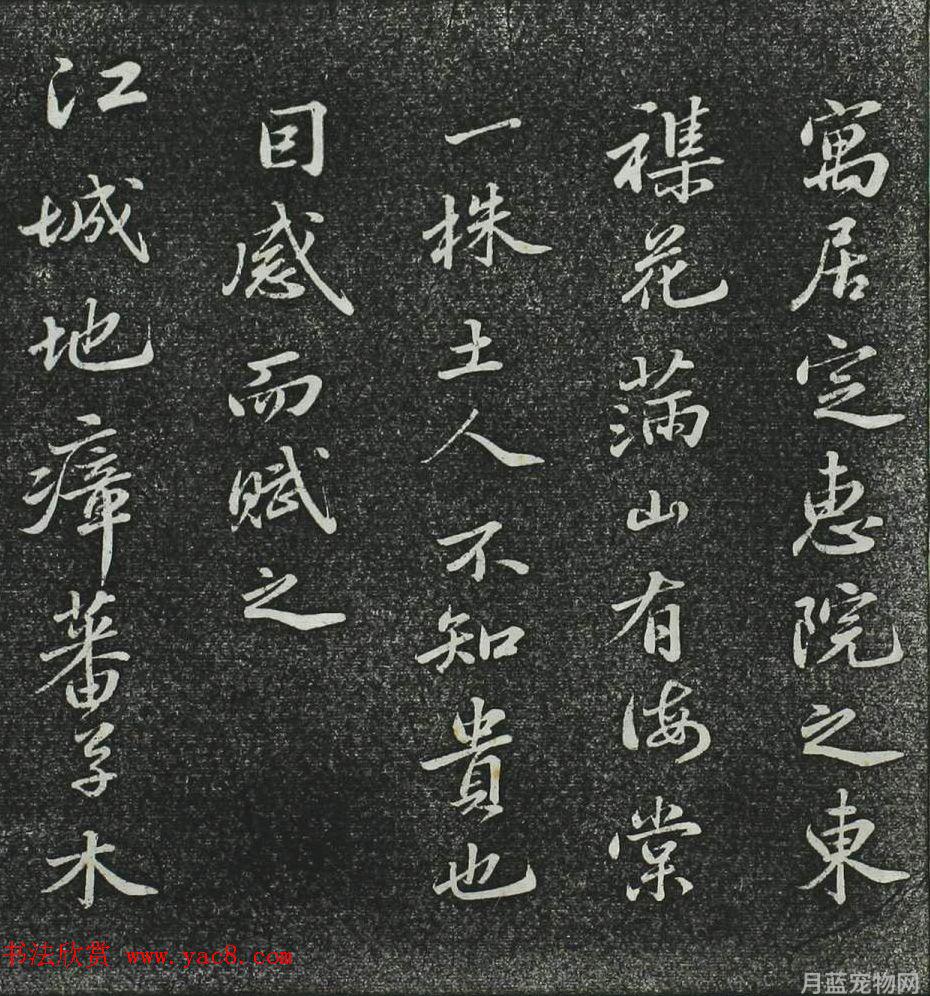 寓居定惠院之東
襍花滿山有海棠
一株土人不知貴也
因感而賦之
江城地瘴蕃草木
书法欣赏 www.yac8.com
月蓝宠物网